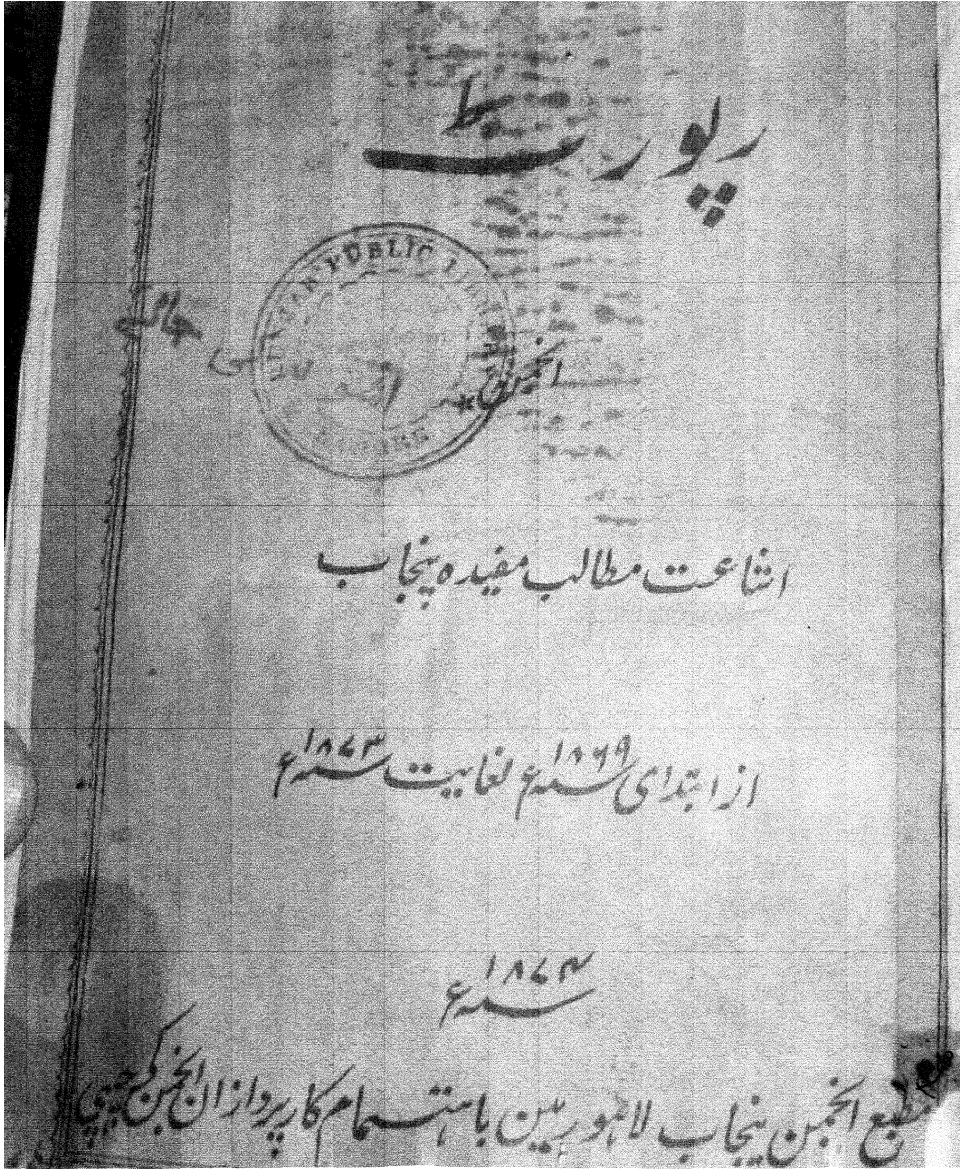 رپورٹ
PUNJAB PUBLIC
LAHORE
انجمن
اشاعت مطالب مفیدہ پنجاب
از ابتدای ۱۸۶۹ سنہ ء لغایت ۱۸۷۳ سنہ ء
۱۸۷۴ سنہ ء
مطبع انجمن پنجاب لاہور مین باہتمام کارپردازان انجمن کی چھپی